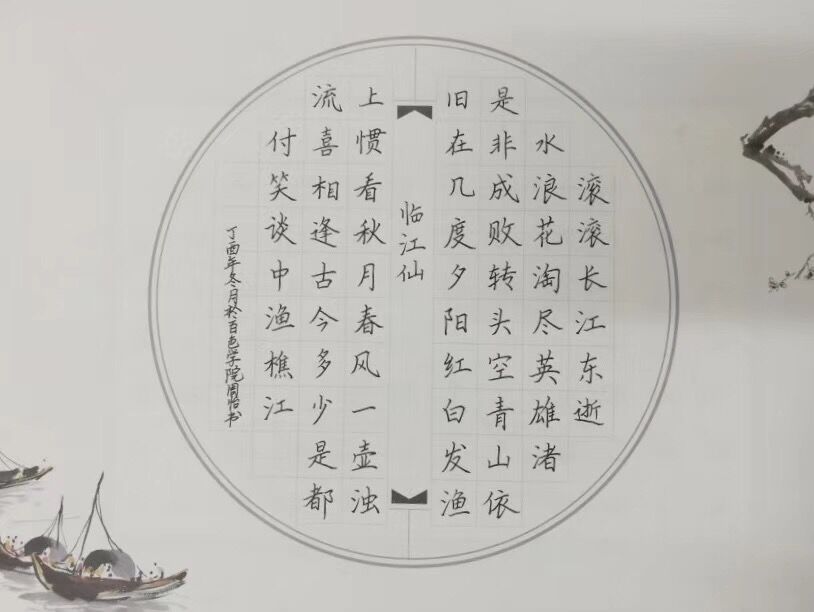 滚滚长江东逝
水浪花淘尽英雄渚
是非成败转头空青山依
旧在几度夕阳红白发渔
临江仙
上惯看秋月春风一壶浊
流喜相逢古今多少是都
付笑谈中渔樵江
丁酉年冬月於百色学院周怡书